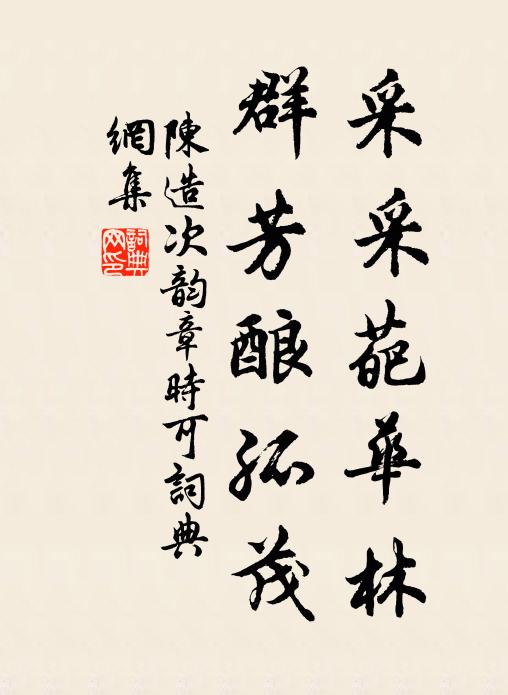 采采葩華林
群芳酿孤茂
陳造次韵章時可詞典
網集
詞典
网印